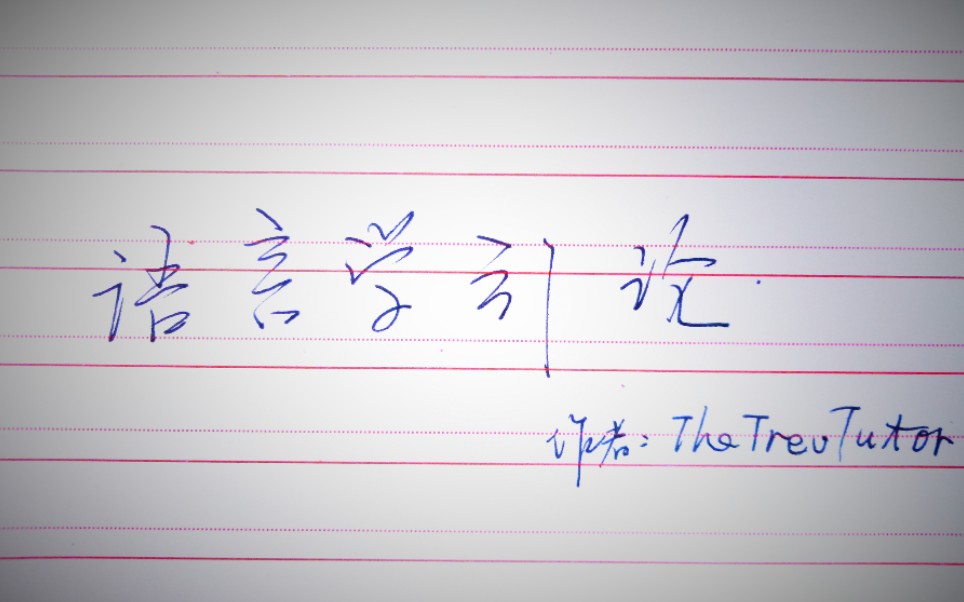 语言学引论
作者: TheTrevTutor